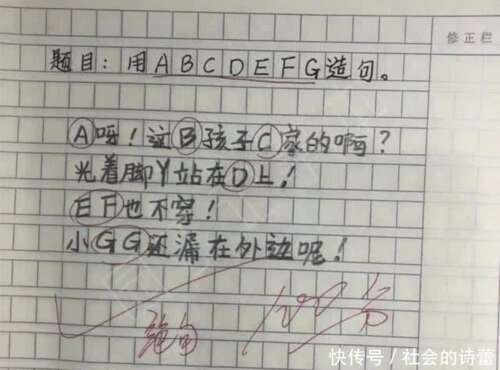 修正栏
题目：用ABCDEFG造句。
A呀！这B孩子C家的啊？
光着脚丫站在D上！
EF也不穿！
小GG还漏在外边呢！
绝句
100分
快传号/社会的诗蕾